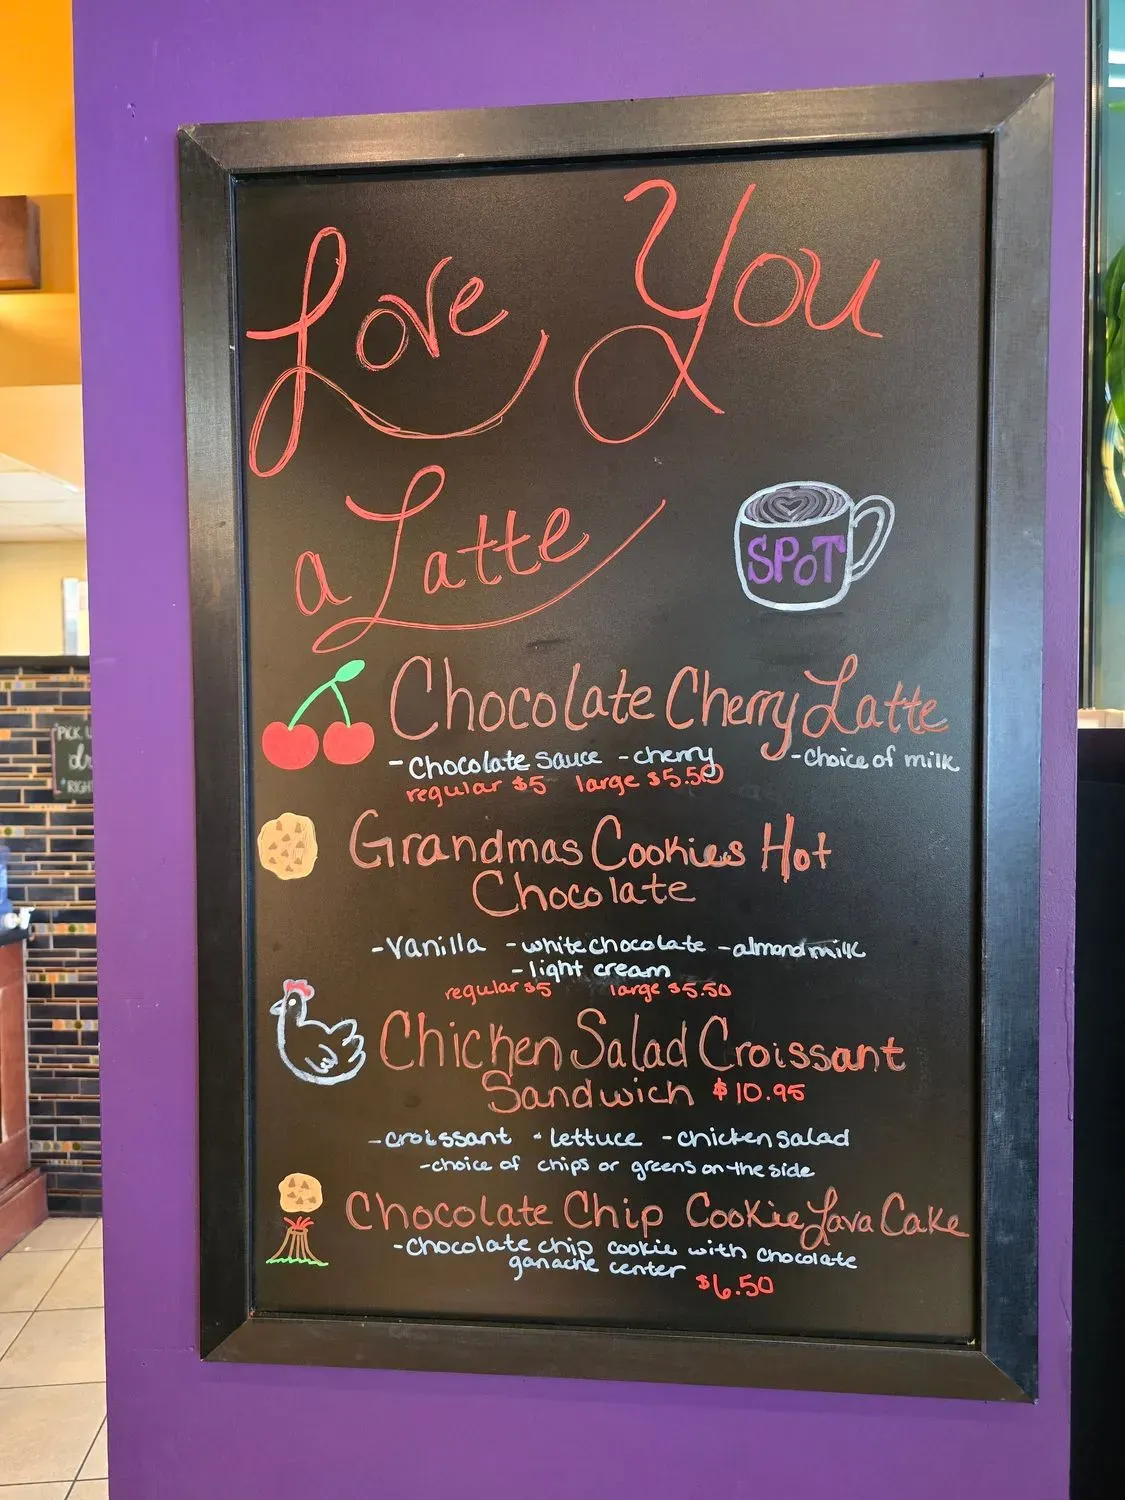 Love You
a Latte
SPOT
Chocolate Cherry Latte
- Chocolate sauce - cherry - choice of milk
regular $5 large $5.50
Grandmas Cookies Hot
Chocolate
- vanilla - white chocolate - almond milk
- light cream
regular $5 large $5.50
Chicken Salad Croissant
Sandwich $10.95
- croissant - lettuce - chicken salad
- choice of chips or greens on the side
Chocolate Chip Cookie Lava Cake
- Chocolate chip cookie with chocolate
ganache center
$6.50
PICK